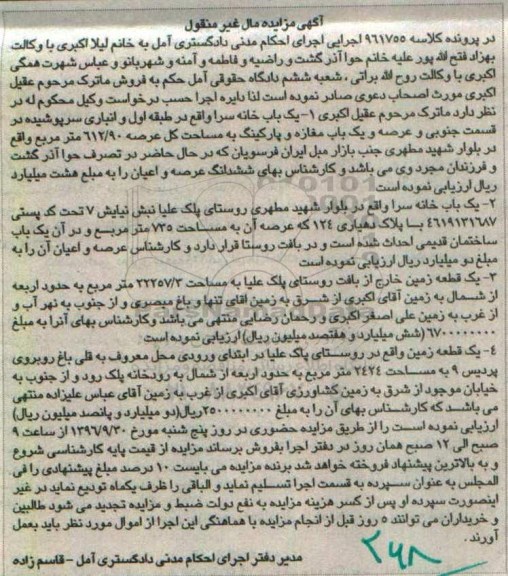 آگهی مزایده مال غیر منقول
در پرونده کلاسه ۹۶۱۷۵۵ اجرایی اجرای احکام مدنی دادگستری آمل به خانم لیلا اکبری با وکالت
بهزاد فتح الله پور علیه خانم حوا آذر گشت و راضیه و فاطمه و آمنه و شهربانو و عباس شهرت همگی
اکبری با وکالت روح الله براتی ، شعبه ششم دادگاه حقوقی آمل حکم به فروش ماترک مرحوم عقیل
اکبری مورث اصحاب دعوی صادر نموده است لذا دایره اجرا حسب درخواست وکیل محکوم له در
نظر دارد ماترک مرحوم عقیل اکبری ۱- یک باب خانه سرا واقع در طبقه اول و انباری سرپوشیده در
قسمت جنوبی و عرصه و یک باب مغازه و پارکینگ به مساحت کل عرصه ۶۱۲/۹۰ متر مربع واقع
در بلوار شهید مطهری جنب بازار مبل ایران فرسویان که در حال حاضر در تصرف حوا آذر گشت
و فرزندان مجرد وی می باشد و کارشناس بهای ششدانگ عرصه و اعیان را به مبلغ هشت میلیارد
ریال ارزیابی نموده است
۲- یک باب خانه سرا واقع در بلوار شهید مطهری روستای پلک علیا نبش نیایش ۷ تحت کد پستی
۴۶۱۹۱۳۱۶۸۷ با پلاک دهیاری ۱۲۴ که عرصه آن به مساحت ۷۳۵ متر مربع و در آن یک باب
ساختمان قدیمی احداث شده است و در بافت روستا قرار دارد و کارشناس عرصه و اعیان آن را به
مبلغ دو میلیارد ریال ارزیابی نموده است
۳- یک قطعه زمین خارج از بافت روستای پلک علیا به مساحت ۲۲۲۵۷/۳ متر مربع به حدود اربعه
از شمال به زمین آقای اکبری از شرق به زمین اقای تنها و باغ مبصری و از جنوب به نهر آب و
از غرب به زمین علی اصغر اکبری و رحمان رضایی منتهی می باشد وکارشناس بهای آنرا به مبلغ
۶۷۰۰۰۰۰۰۰۰ (شش میلیارد و هفتصد میلیون ریال) ارزیابی نموده است
۴- یک قطعه زمین واقع در روستای پاک علیا در ابتدای ورودی محل معروف به قلی باغ روبروی
پردیس ۹ به مساحت ۲۴۲۴ متر مربع به حدود اربعه از شمال به رودخانه پلک رود و از جنوب به
خیابان موجود از شرق به زمین کشاورزی آقای اکبری از غرب به زمین آقای عباس علیزاده منتهی
می باشد که کارشناس بهای آن را به مبلغ ۲۵۰۰۰۰۰۰۰۰ریال(دو میلیارد و پانصد میلیون ریال)
ارزیابی نموده است را از طریق مزایده حضوری در روز پنج شنبه مورخ ۱۳۹۶/۹/۳۰ از ساعت ۹
صبح الی ۱۲ صبح همان روز در دفتر اجرا بفروش برساند مزایده از قیمت پایه کارشناسی شروع
و به بالاترین پیشنهاد فروخته خواهد شد برنده مزایده می بایست ۱۰ درصد مبلغ پیشنهادی را فی
المجلس به عنوان سپرده به قسمت اجرا تسلیم نماید و الباقی را ظرف یکماه تودیع نماید در غیر
اینصورت سپرده او پس از کسر هزینه مزایده به نفع دولت ضبط و مزایده تجدید می شود طالبین
و خریداران می توانند ۵ روز قبل از انجام مزایده با هماهنگی این اجرا از اموال مورد نظر باید بعمل
آورند .
مدیر دفتر اجرای احکام مدنی دادگستری آمل - قاسم زاده
۲۶۸